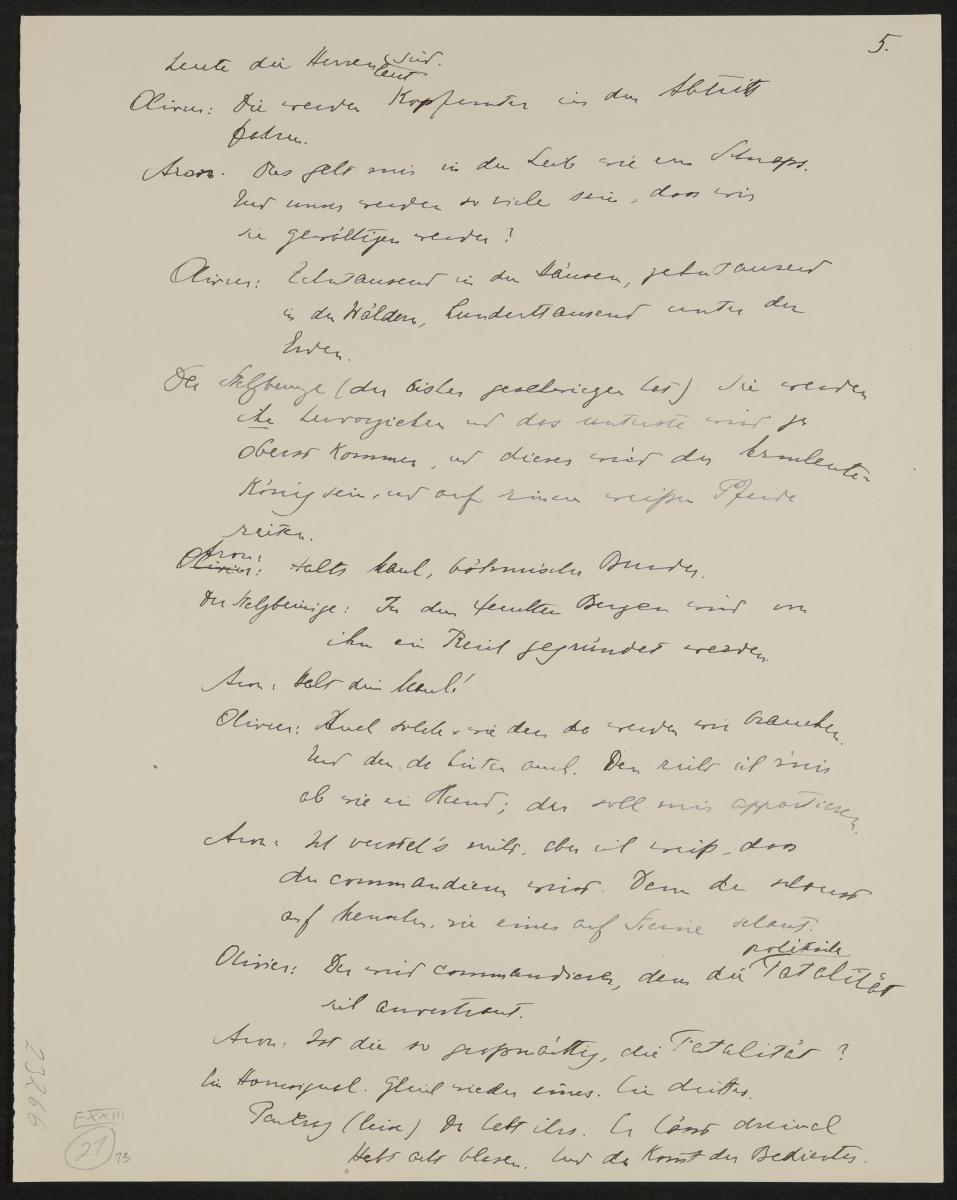 5.
heute die Herren sind.
laut
Olivier: Die werden Kopfunter in den Abtritt
fahren.
Aron. Das geht mir in den Leib wie ein Schnaps.
Und unser werden so viele sein, dass wir
sie gewältigen werden?
Olivier: Zehntausend in den Häusern, zehntausend
in den Wäldern, hunderttausend unter der
Erden.
Der Stelzbeinige (der bisher geschwiegen hat) Sie werden
ihn hervorziehen und das unterste wird zu
oberst kommen, und dieser wird der Armeleute-
König sein, und auf einem weißen Pferde
reiten.
Aron:
Olivier: Halts Maul, böhmischer Bruder.
Der Stelzbeinige: In den Bergen wird von
ihm ein Reich gegründet werden.
Aron: Halt dein Maul!
Olivier: Auch solche wie den da werden wir brauchen.
Und den da hinten auch. Den richt ich mir
ab wie ein Hund; der soll mir apportieren.
Aron: Ich versteh's nicht, aber ich weiß, dass
du commandieren wirst. Denn du schaust
auf Menschen, wie einer auf Steine schaut.
politische
Olivier: Der wird commandieren, dem die Fatalität
sich anvertraut.
Aron: Ist die so großmächtig, die Fatalität?
Ein Hornsignal. Gleich wieder eines. Ein drittes.
Pankraz (leise) Da habt ihrs. Er lässt dreimal
Habt acht blasen. Und da kommt der Bediente.
23266
E XXIII
21
73